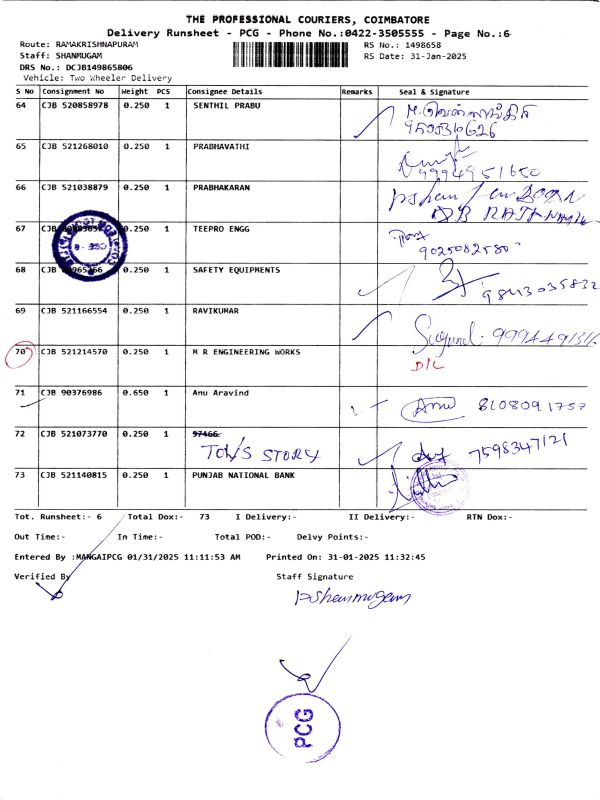 THE PROFESSIONAL COURIERS, COIMBATORE
Delivery Runsheet - PCG - Phone No.:0422-3505555 - Page No.:6
Route: RAMAKRISHNAPURAM
RS No.: 1498658
Staff: SHANMUGAM
RS Date: 31-Jan-2025
DRS No.: DCJB149865806
Vehicle: Two Wheeler Delivery
S No Consignment No Weight PCS Consignee Details Remarks Seal & Signature
64 CJB 520858978 0.250 1 SENTHIL PRABU
65 CJB 521268010 0.250 1 PRABHAVATHI 9994951650
66 CJB 521038879 0.250 1 PRABHAKARAN
67 CJB 0.250 1 TEEPRO ENGG 9025082580
68 CJB 0.250 1 SAFETY EQUIPMENTS 9843035832
69 CJB 521166554 0.250 1 RAVIKUMAR
70 CJB 521214570 0.250 1 M R ENGINEERING WORKS D/L
71 CJB 90376986 0.650 1 Anu Aravind Anu 8108091757
72 CJB 521073770 0.250 1 97466 7598347121
TOYS STORY
73 CJB 521140815 0.250 1 PUNJAB NATIONAL BANK
Tot. Runsheet:- 6 Total Dox:- 73 I Delivery:- II Delivery:- RTN Dox:-
Out Time:- In Time:- Total POD:- Delvy Points:-
Entered By :MANGAIPCG 01/31/2025 11:11:53 AM Printed On: 31-01-2025 11:32:45
Verified By Staff Signature
PShanmugam
PCG